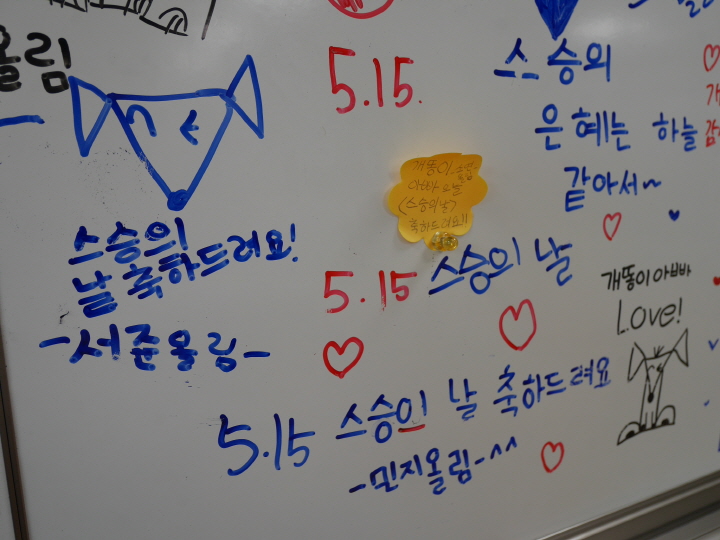 올림
5.15.
스승의
은혜는 하늘
같아서~
개똥이
아빠 오늘
(스승의날)
축하드려요!!
스승의!
날 축하드려요!
-서준올림-
5.15 스승의 날
개똥이아빠
Love!
5.15 스승이 날 축하드려요
-민지올림-^^